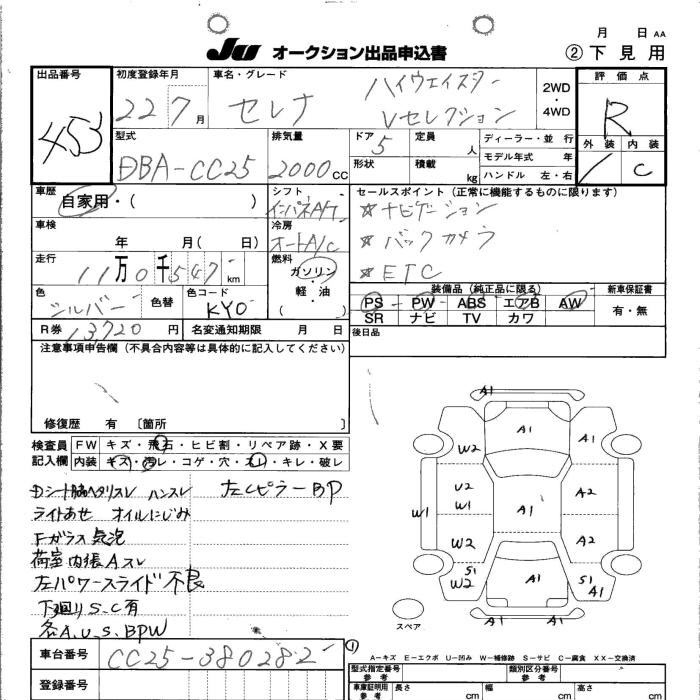 月 日 AA
JU オークション出品申込書 ② 下見用
出品番号 453
初度登録年月 22 7月
車名・グレード セレナ ハイウェイスター Vセレクション
2WD・4WD
評価点 R
外装 内装 C
型式 DBA-CC25
排気量 2000 CC
ドア 5
定員 人
形状
積載 kg
ディーラー・並行
モデル年式 年
ハンドル 左・右
車歴 自家用・( )
シフト インパネA/T
車検 年 月( 日)
冷房 オートA/C
走行 11万0千547 km
燃料 ガソリン・軽油 ( )
色 シルバー 色替
色コード KY0
R券 13720 円
名変通知期限 月 日
セールスポイント (正常に機能するものに限ります)
☆ナビゲーション
☆バックカメラ
☆ETC
装備品(純正品に限る)
PS PW ABS エアB AW
SR ナビ TV カワ
新車保証書 有・無
後日品
注意事項申告欄(不具合内容等は具体的に記入してください)
修復歴 有 〔箇所 〕
検査員記入欄
FW キズ・飛石・ヒビ割・リペア跡・X要
内装 キズ・汚レ・コゲ・穴・スレ・キレ・破レ
ハンスレ 左Cピラー BP
ライトあせ オイルにじみ
Fガラス 気泡
荷室内張Aスレ
左パワースライド不良
下廻りS.C有
各A.U.S.BPW
A1
A1 A1
W2
A1
U2
W1
W1
A2
W2
A2
S1
W2
A1
S1
A1
A1
A1
スペア
①
A-キズ E-エクボ U-凹み W-補修跡 S-サビ C-腐食 XX-交換済
車台番号 CC25-380282
登録番号
型式指定番号 参考
類別区分番号 参考
車庫証明用 参考 長さ cm 幅 cm 高さ cm